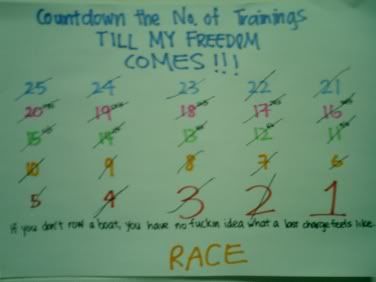 Countdown the No. of Trainings
TILL MY FREEDOM
COMES!!!
25 24 23 22 21
20 19 18 17 16
15 14 13 12 11
10 9 8 7 6
5 4 3 2 1
If you don't row a boat, you have no fuckin idea what a last charge feels like
RACE